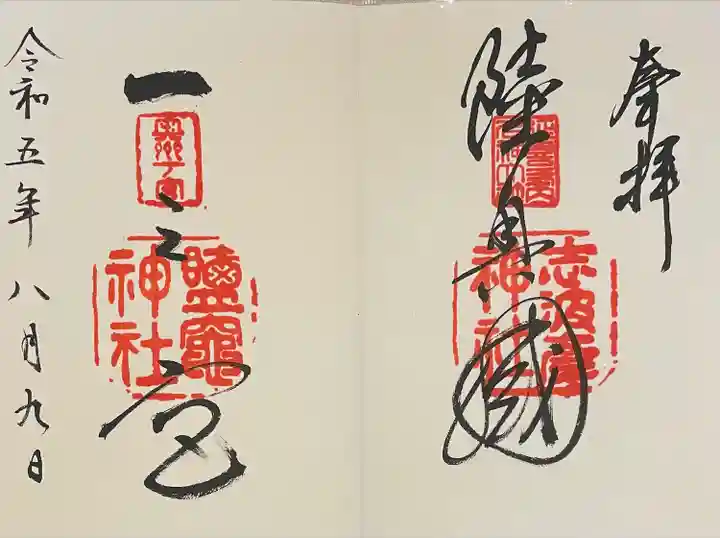 奉拝
陸奥國
志波彦
神社
一之宮
奥州一宮
鹽竈
神社
令和五年八月九日